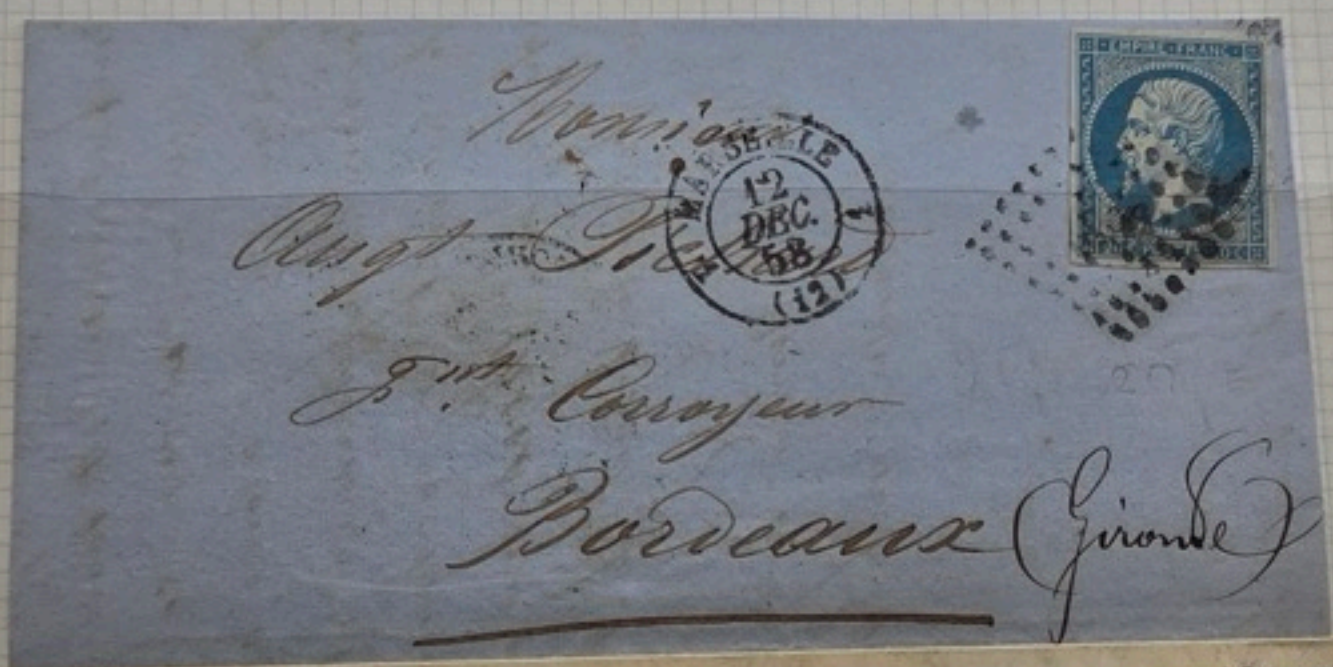 EMPIRE FRANC
Monsieur
MARSEILLE 1
12
DEC.
58
(12)
Augt
Corroyeur
Bordeaux (Gironde)